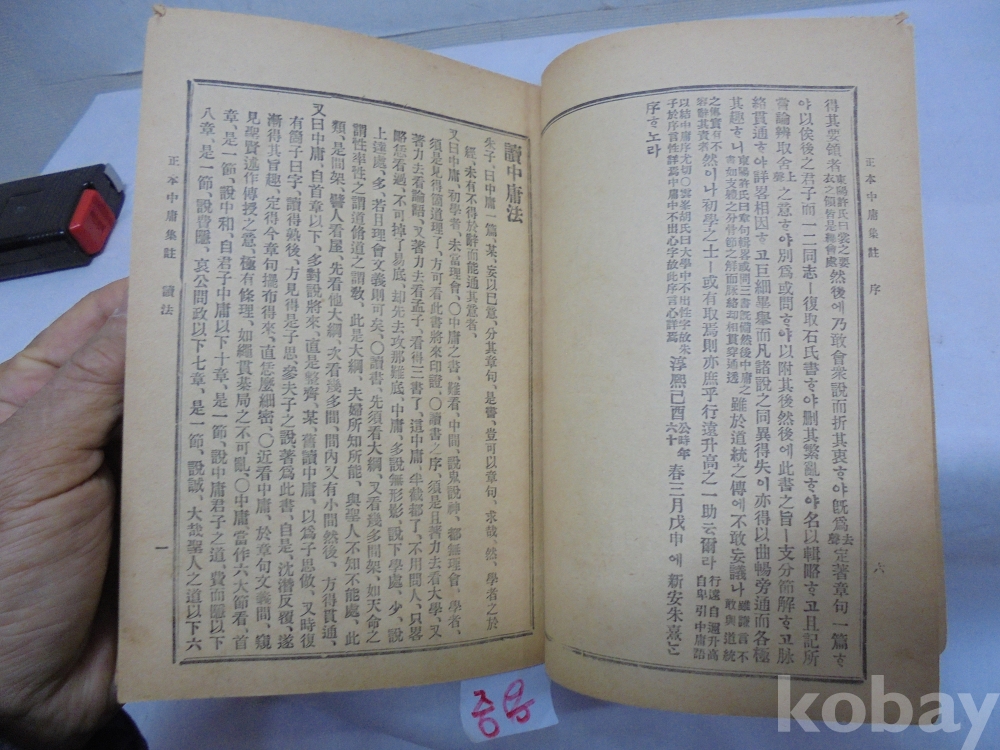 正本中庸集註 序 六
得其要領者 東陽許氏曰裳之要衣之領皆是總會處 然後에乃敢會衆說而折其衷ᄒᆞ야旣爲去聲定著章句一篇ᄒᆞ
야以俟後之君子而一二同志ㅣ復取石氏書ᄒᆞ야刪其繁亂ᄒᆞ야名以輯略ᄒᆞ고且記所
嘗論辨取舍上聲之意ᄒᆞ야別爲或問ᄒᆞ야以附其後然後에此書之旨ㅣ支分節解ᄒᆞ고脉
絡貫通ᄒᆞ야詳畧相因ᄒᆞ고巨細畢擧而凡諸說之同異得失이亦得以曲暢旁通而各極
其趣ᄒᆞ니 東陽許氏曰章句輯畧或問三書旣備然後中庸之書如支體之分骨節之解而脉絡却相貫穿通透 雖於道統之傳에不敢妄議나 雖謙言不敢與道統
之傳實有不容辭其責者 然이나初學之士ㅣ或有取焉則亦庶乎行遠升高之一助云爾라 行遠自邇升高自卑引中庸語
以結中庸序尤切○雲峯胡氏曰大學中不出性字故朱子於序言性詳焉中庸中不出心字故此序言心詳焉 淳熙己酉 公時年六十 春三月戊申에新安朱熹는
序ᄒᆞ노라
讀中庸法
朱子曰中庸一篇、某、妄以已意、分其章句、是書、豈可以章句、求哉、然、學者之於
經、未有不得於辭而能通其意者、
又曰中庸、初學者、未當理會、○中庸之書、難看、中間、說鬼說神、都無理會、學者、
須是見得箇道理了、方可看此書將來印證、○讀書之序、須是且著力去看大學、又
著力去看論語、又著力去看孟子、看得三書了、這中庸、半截都了、不用問人、只畧
略恁看過、不可掉了易底、却先去攻那難底、中庸、多說無形影、說下學處、少、說
上達處、多、若且理會文義則可矣、○讀書、先須看大綱、又看幾多間架、如天命之
謂性率性之謂道脩道之謂敎、此是大綱、夫婦所知所能、與聖人不知不能處、此
類、是間架、譬人看屋、先看他大綱、次看幾多間、間內又有小間然後、方得貫通、
又曰中庸、自首章以下、多對說將來、直是整齊、某、舊讀中庸、以爲子思做、又時復
有箇子曰字、讀得熟後、方見得是子思、參夫子之說著爲此書、自是、沈潛反覆、遂
漸得其旨趣、定得今章句擺布得來、直恁麽細密、○近看中庸、於章句文義間、窺
見聖賢述作傳授之意、極有條理、如繩貫棊局之不可亂、○中庸、當作六大節看、首
章、是一節、說中和、自君子中庸以下十章、是一節、說中庸君子之道、費而隱以下
八章、是一節、說費隱、哀公問政以下七章、是一節、說誠、大哉聖人之道以下六
正本中庸集註 讀法 一
중용
kobay